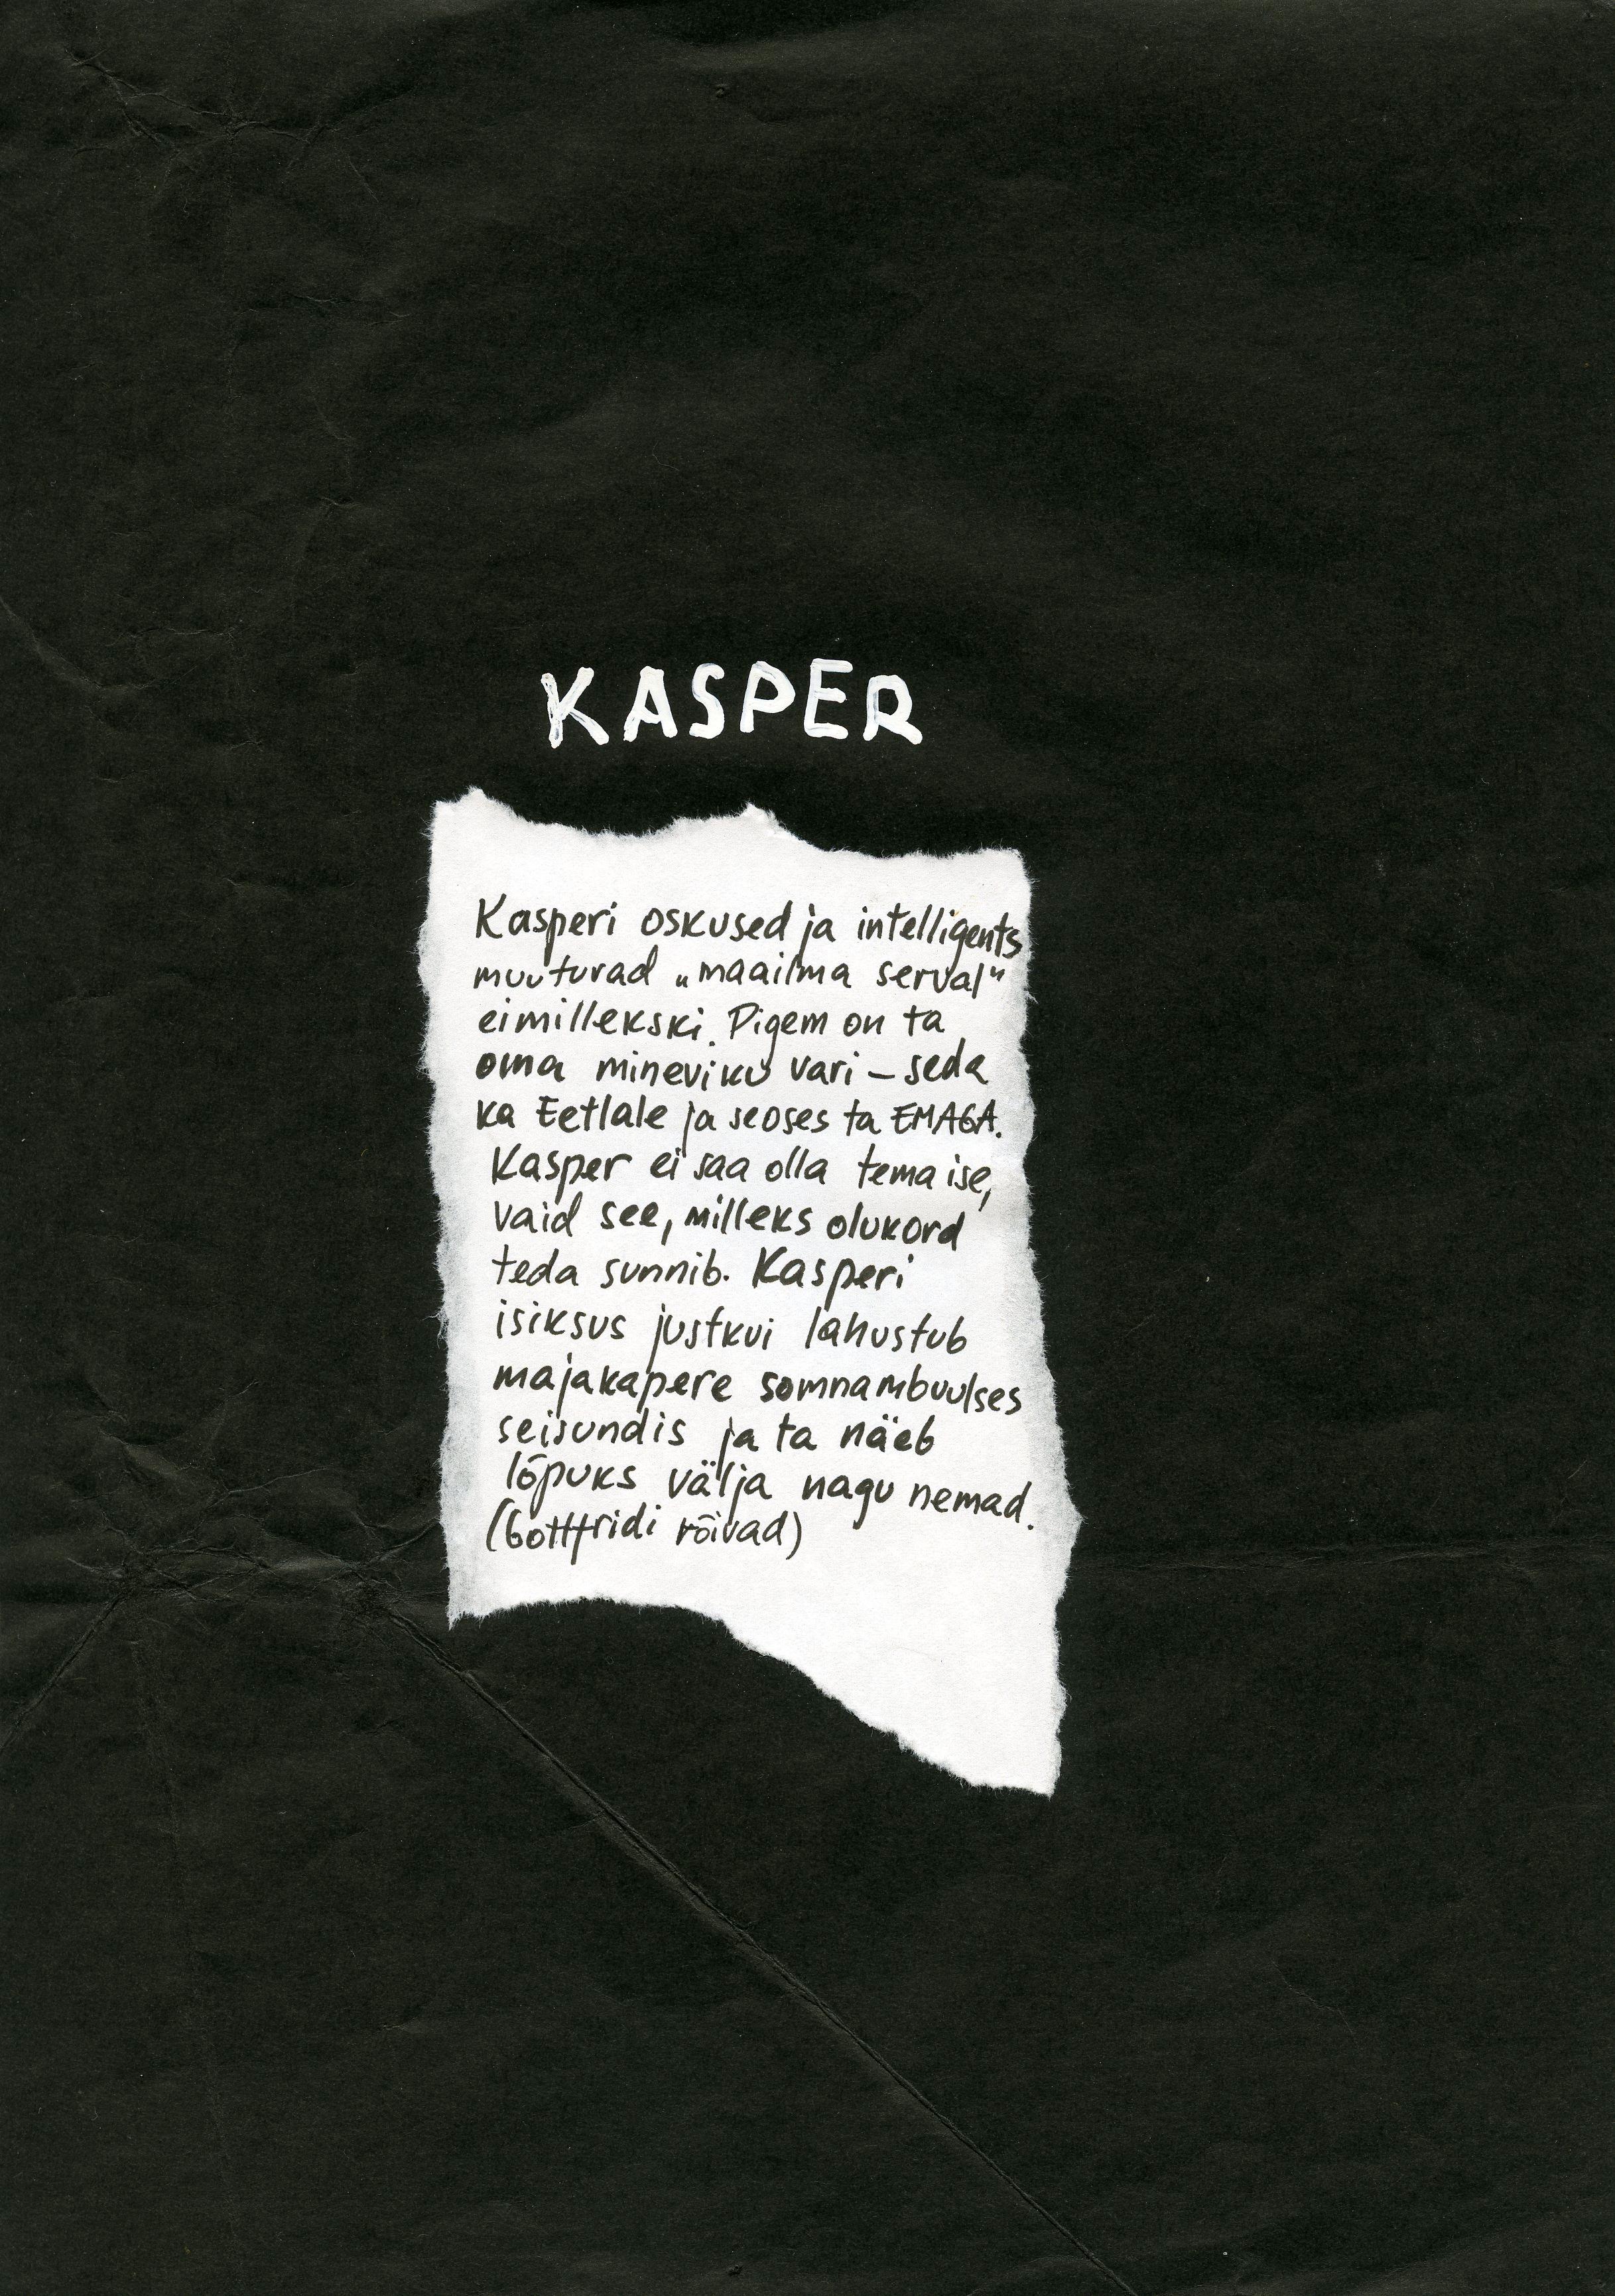 KASPER
Kasperi oskused ja intelligents
muutuvad „maailma serval“
eimillekski. Pigem on ta
oma mineviku vari – seda
ka Eetlale ja seoses ta EMAGA.
Kasper ei saa olla tema ise,
vaid see, milleks olukord
teda sunnib. Kasperi
isiksus justkui lahustub
majakapere somnambuulses
seisundis ja ta näeb
lõpuks välja nagu nemad.
(Gottfridi rõivad)